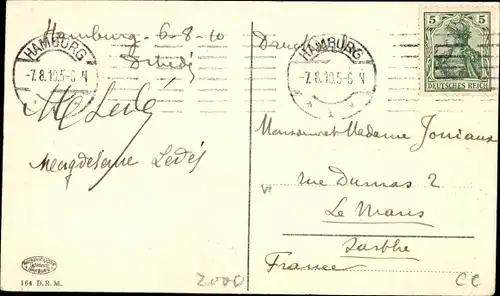 Hamburg - 6-8-10
HAMBURG
-7.8.10.5-6 N
M Ledé
Magdeleine Ledés
164 D. R. M.
2000
HAMBURG
-7.8.10.5-6 N
5 5
DEUTSCHES REICH
Monsieur et Madame Joniaux
rue Dumas 2
Le Mans
Sarthe
France
CC